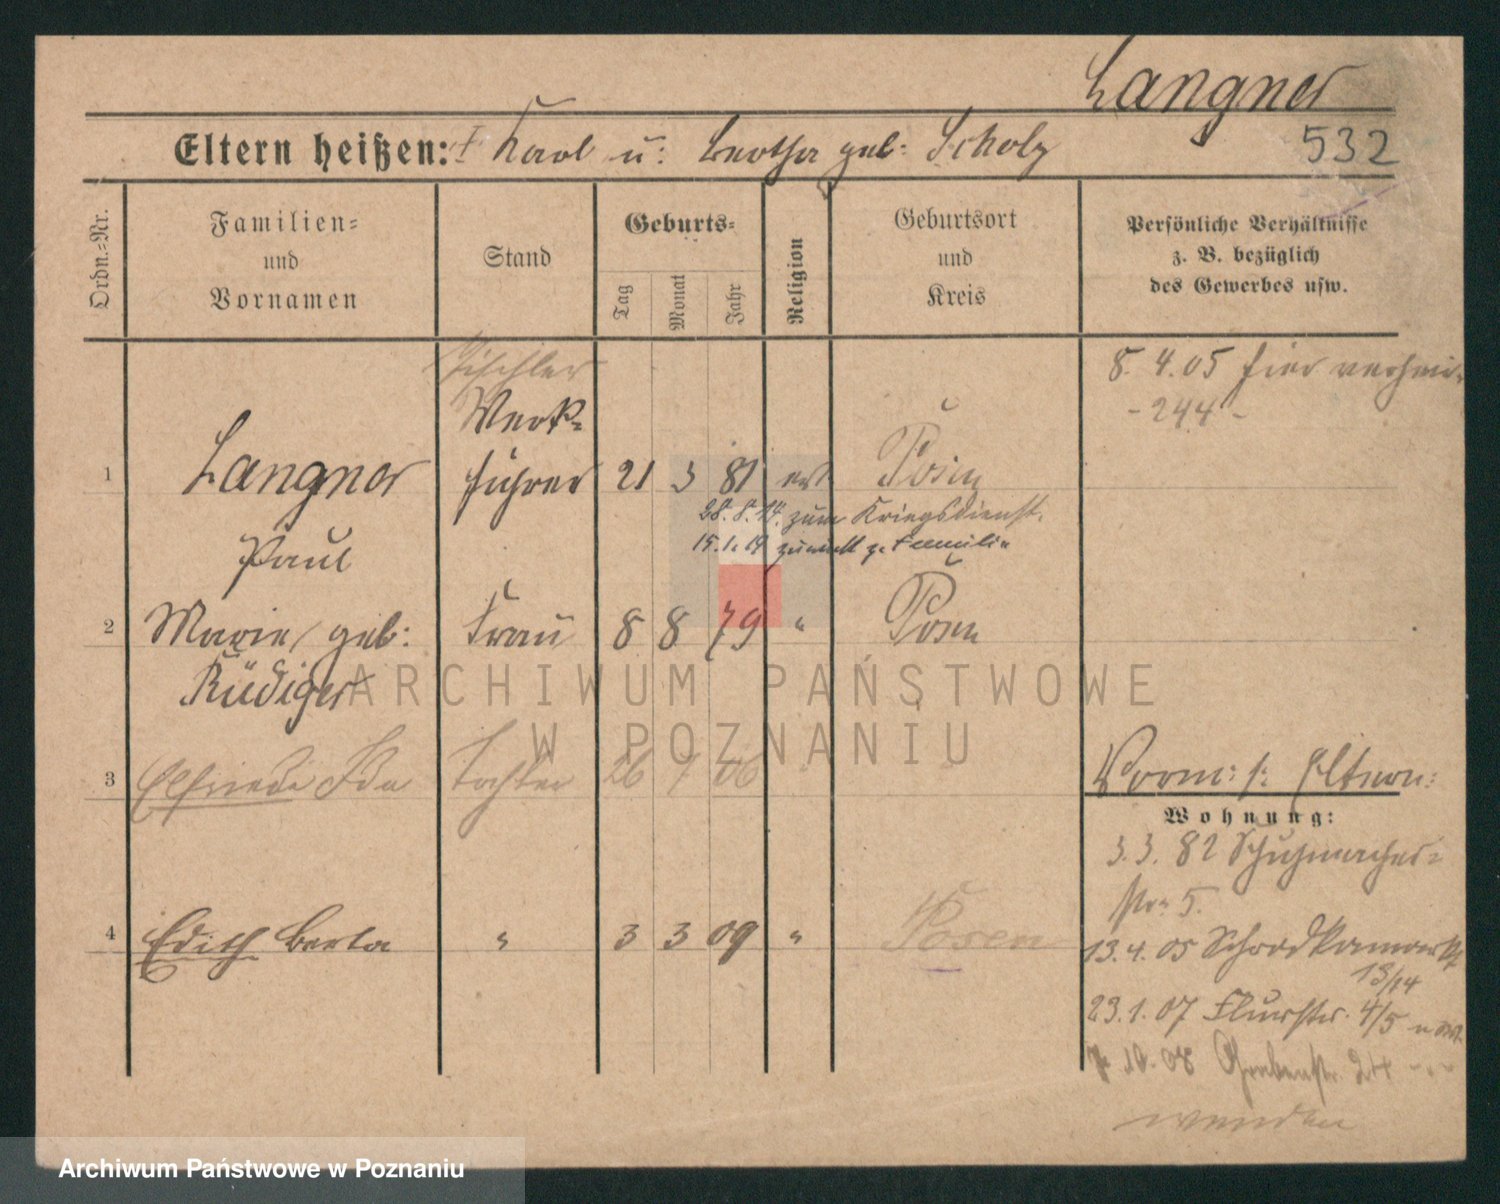 Langner
Eltern heißen: † Karl u: Bertha geb: Scholz
532
Ordn.=Nr.
Familien=
und
Vornamen
Stand
Geburts=
Tag
Monat
Jahr
Religion
Geburtsort
und
Kreis
Persönliche Verhältnisse
z. B. bezüglich
des Gewerbes usw.
Tischler
Werk=
8. 4. 05 hier verhei-
- 244 -
1 Langner führer 21 3 81 ev. Posen
28. 8. 14. zum Kriegsdienst.
15. 1. 19 zurück z. Familie
Paul
2 Marie, geb: Frau 8 8 79 " Posen
Rüdiger
ARCHIWUM PAŃSTWOWE
W POZNANIU
3 Elfriede Ida Tochter 26 1 06
Vorm: s: Eltern:
Wohnung:
3. 3. 82 Schuhmacher=
str: 5.
4 Edith Berta " 3 3 09 " Posen
13. 4. 05 Schrodkamarkt
13/14
23. 1. 07 Flurstr. 4/5
10. 08 Grabenstr. 24
wenden
Archiwum Państwowe w Poznaniu